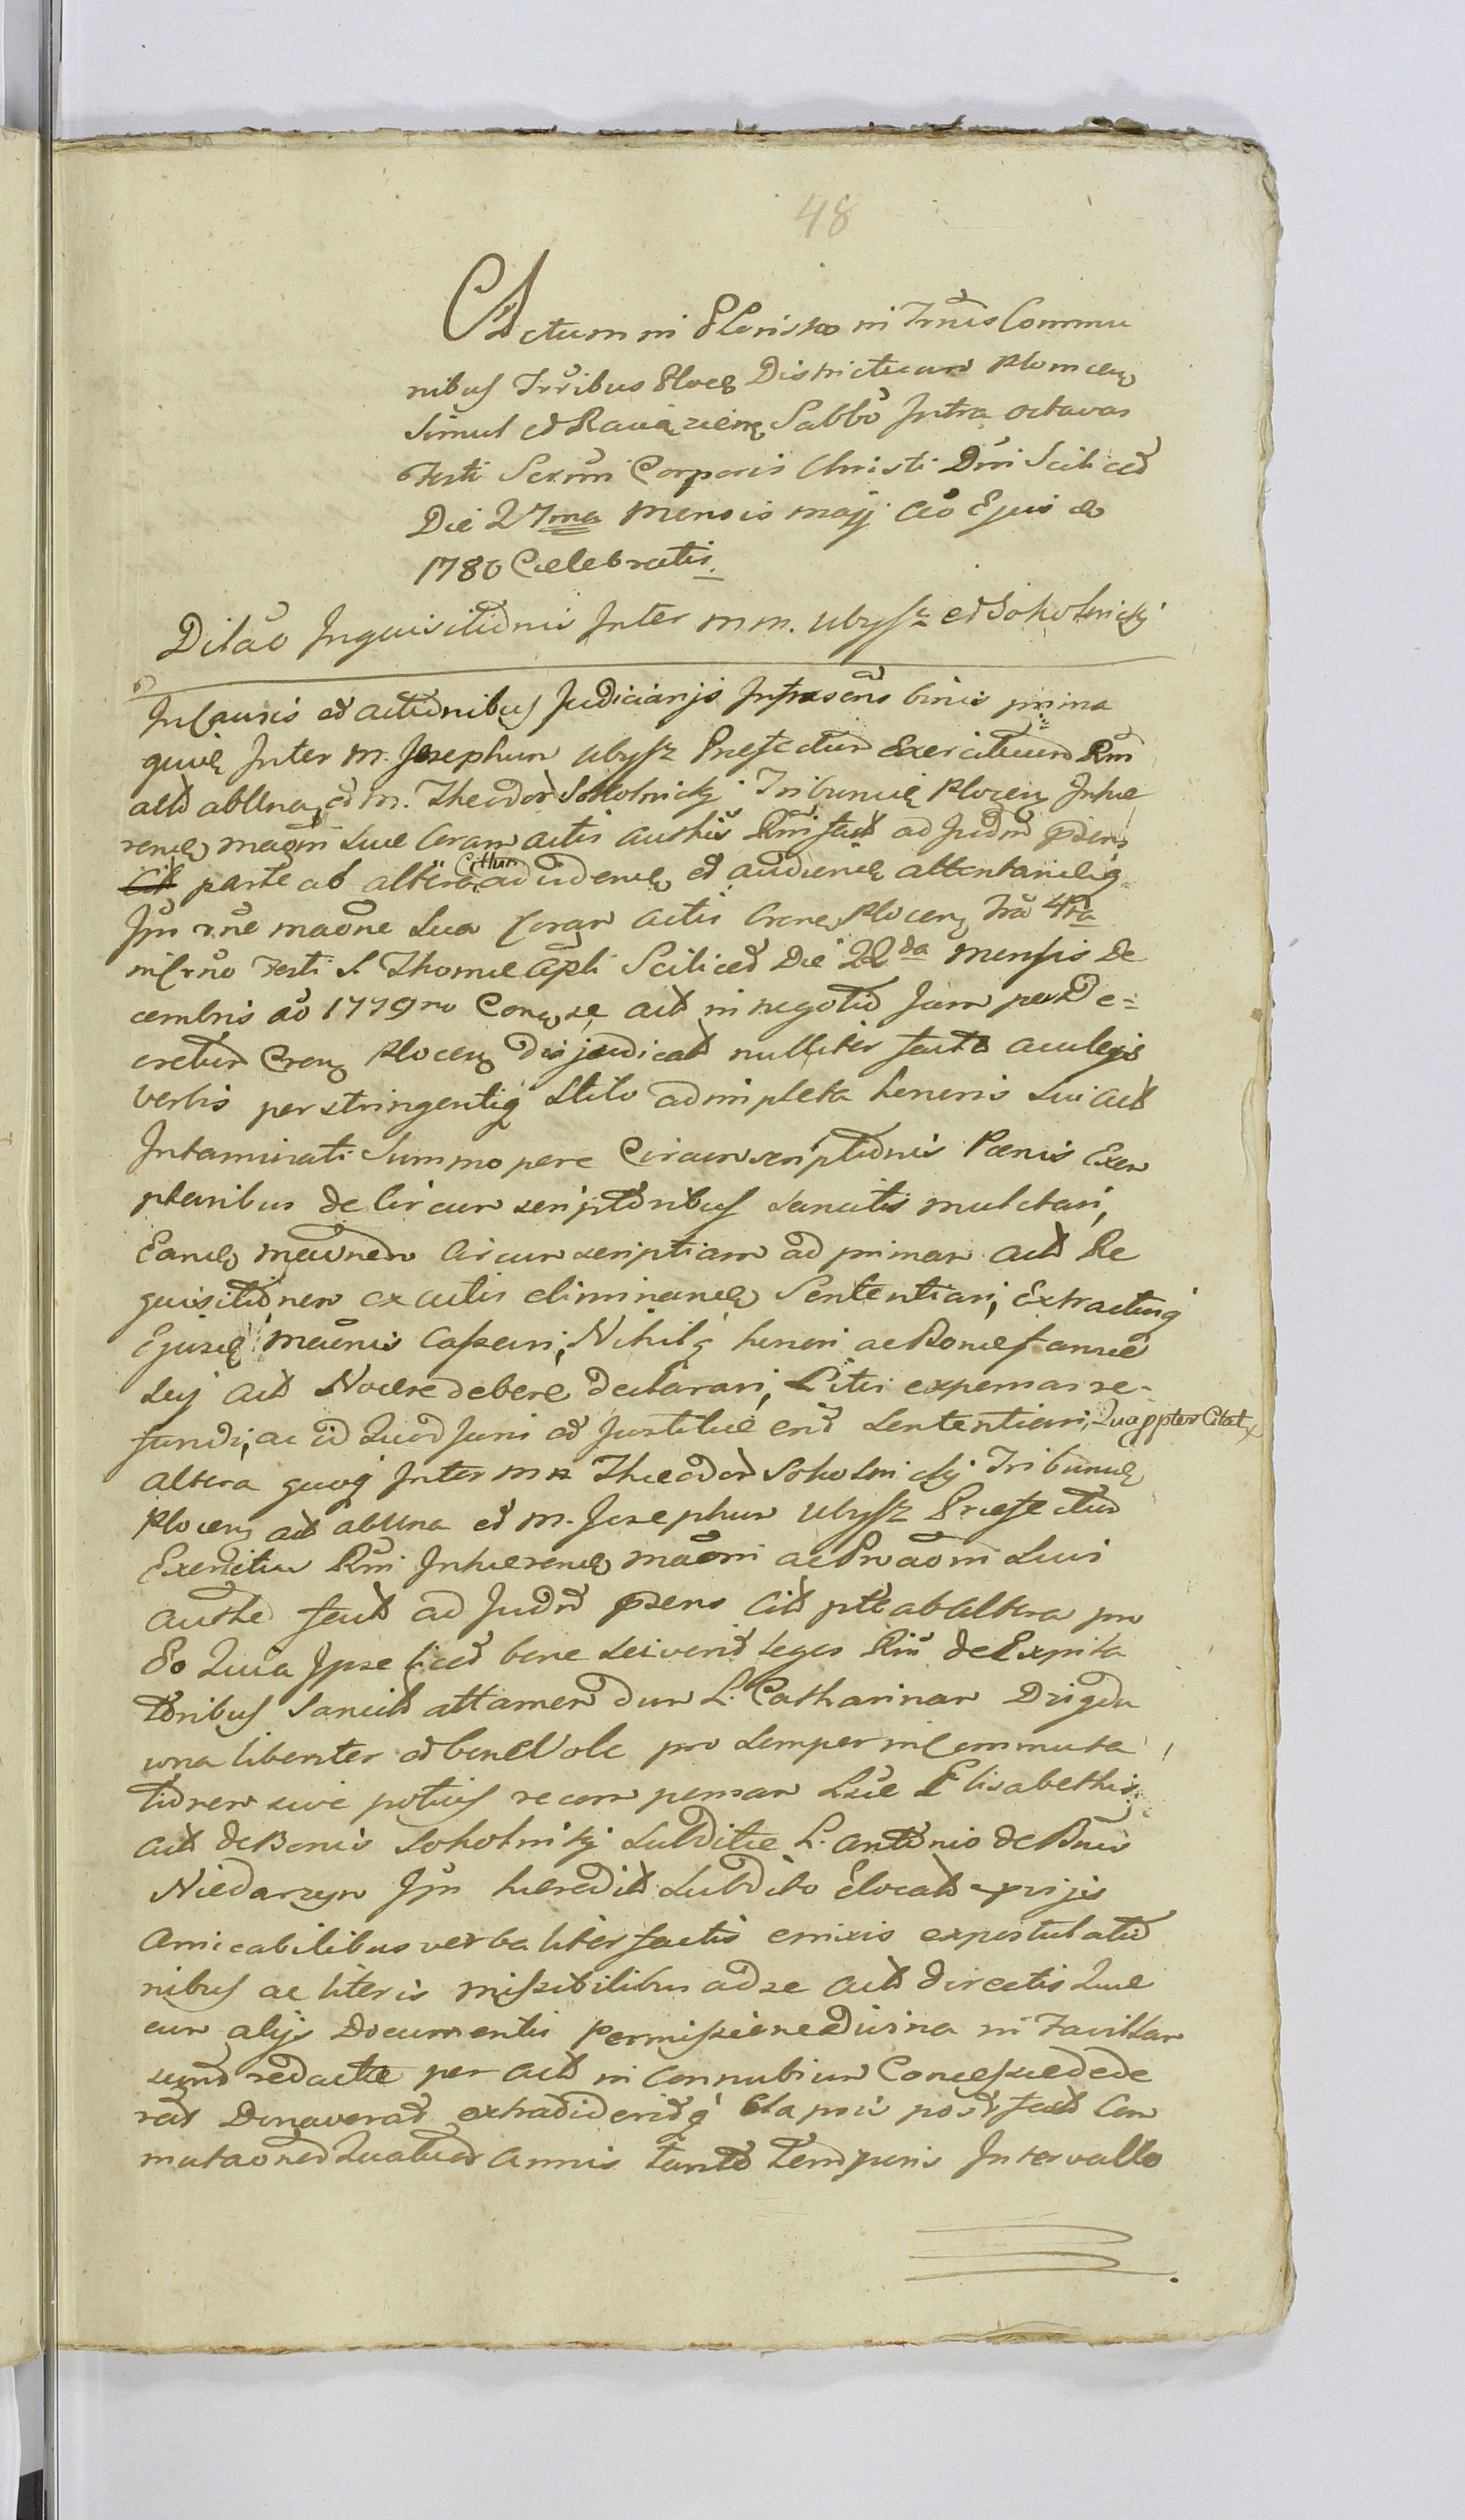 48
Actum in Płonsko in Trnis Commu
nibus Trribus Ploc Districtuum Plonicen
Simul et Raciązien Sabbo Intra octavas
Festi Scrmi Corporis Christi Dni Scilicet
Die 27ma Mensis Maij Ao Ejus do
1780 Celebratis.
Dilao Inquisitionis Inter mm. Ubysz et Sokolnicky
In Causis et actionibus Judiciarijs Infrascris binis prima
quidem Inter M. Josephum Ubysz Praefectum Exercituum Rni
actt ab Una, et M. Theodor Sokolnicky Tribunum Plocen Inhae
ren maoni suae Coram actis authis Rni fact ad Judm psens
Citt parte ab altera Cittum ad viden et audien attentam
Ipm rne maone sua Coram actis Cren Plocen fra 4ta
in Crno Festi S. Thomae Apli Scilicet Die 22da Mensis De
cembris ao 1779no Con se act in negotio jam per De=
cretum Cren Plocen disjudicat nulliter fact aculeis
verbis perstringentiq stilo adimpleta honoris sui act
Intaminati Summopere Circumscriptionis Poenis Exem
plaribus de Circumscriptoribus sancitis mulctari,
Eamq maonem Circumscriptiam ad primam act Re
quisitionem ex actis eliminan Sententiari, Extractusq
Ejusd maonis Cassari, Nihilq honori ac Bonae famae
suj act Nocere debere declarari, Litis expensas re-
fundi, ac id Quod Juri et Justitiae erit Sententiari, Quapptes Citat
altera quoq Inter M Theodor Sokolnicky Tribunum
Plocen act ab Una et M. Josephum Ubysz Praefectum
Exercituu Rni Inhaeren maoni ac Proaoni suis
authe fact ad Judm psens Citt pte ab altera pro
Eo Quia Ipse licet bene sciverit leges Rni de Expila
toribus Sancit attamen dum L. Catharinam
una libenter et beneVole pro semper in Commuta
tionem sive potius recompensam Elisabethis
act de Bonis Sokolniky subditae L. Antonio de Bnis
Niedarzyn Ipm haeredit subdito elocat
amicabilibus verbaliter factis enixis expostulatio
nibus ac literis missibilibus ad se act directis Quae
cum alijs Documentis permissione divina in Favillam
sunt redactae per act in Connubium Concessae dede
rat Donaverat extradideritq Elapsis post fact Com
mutaonem Quatuor annis tanto temporis Intervallo